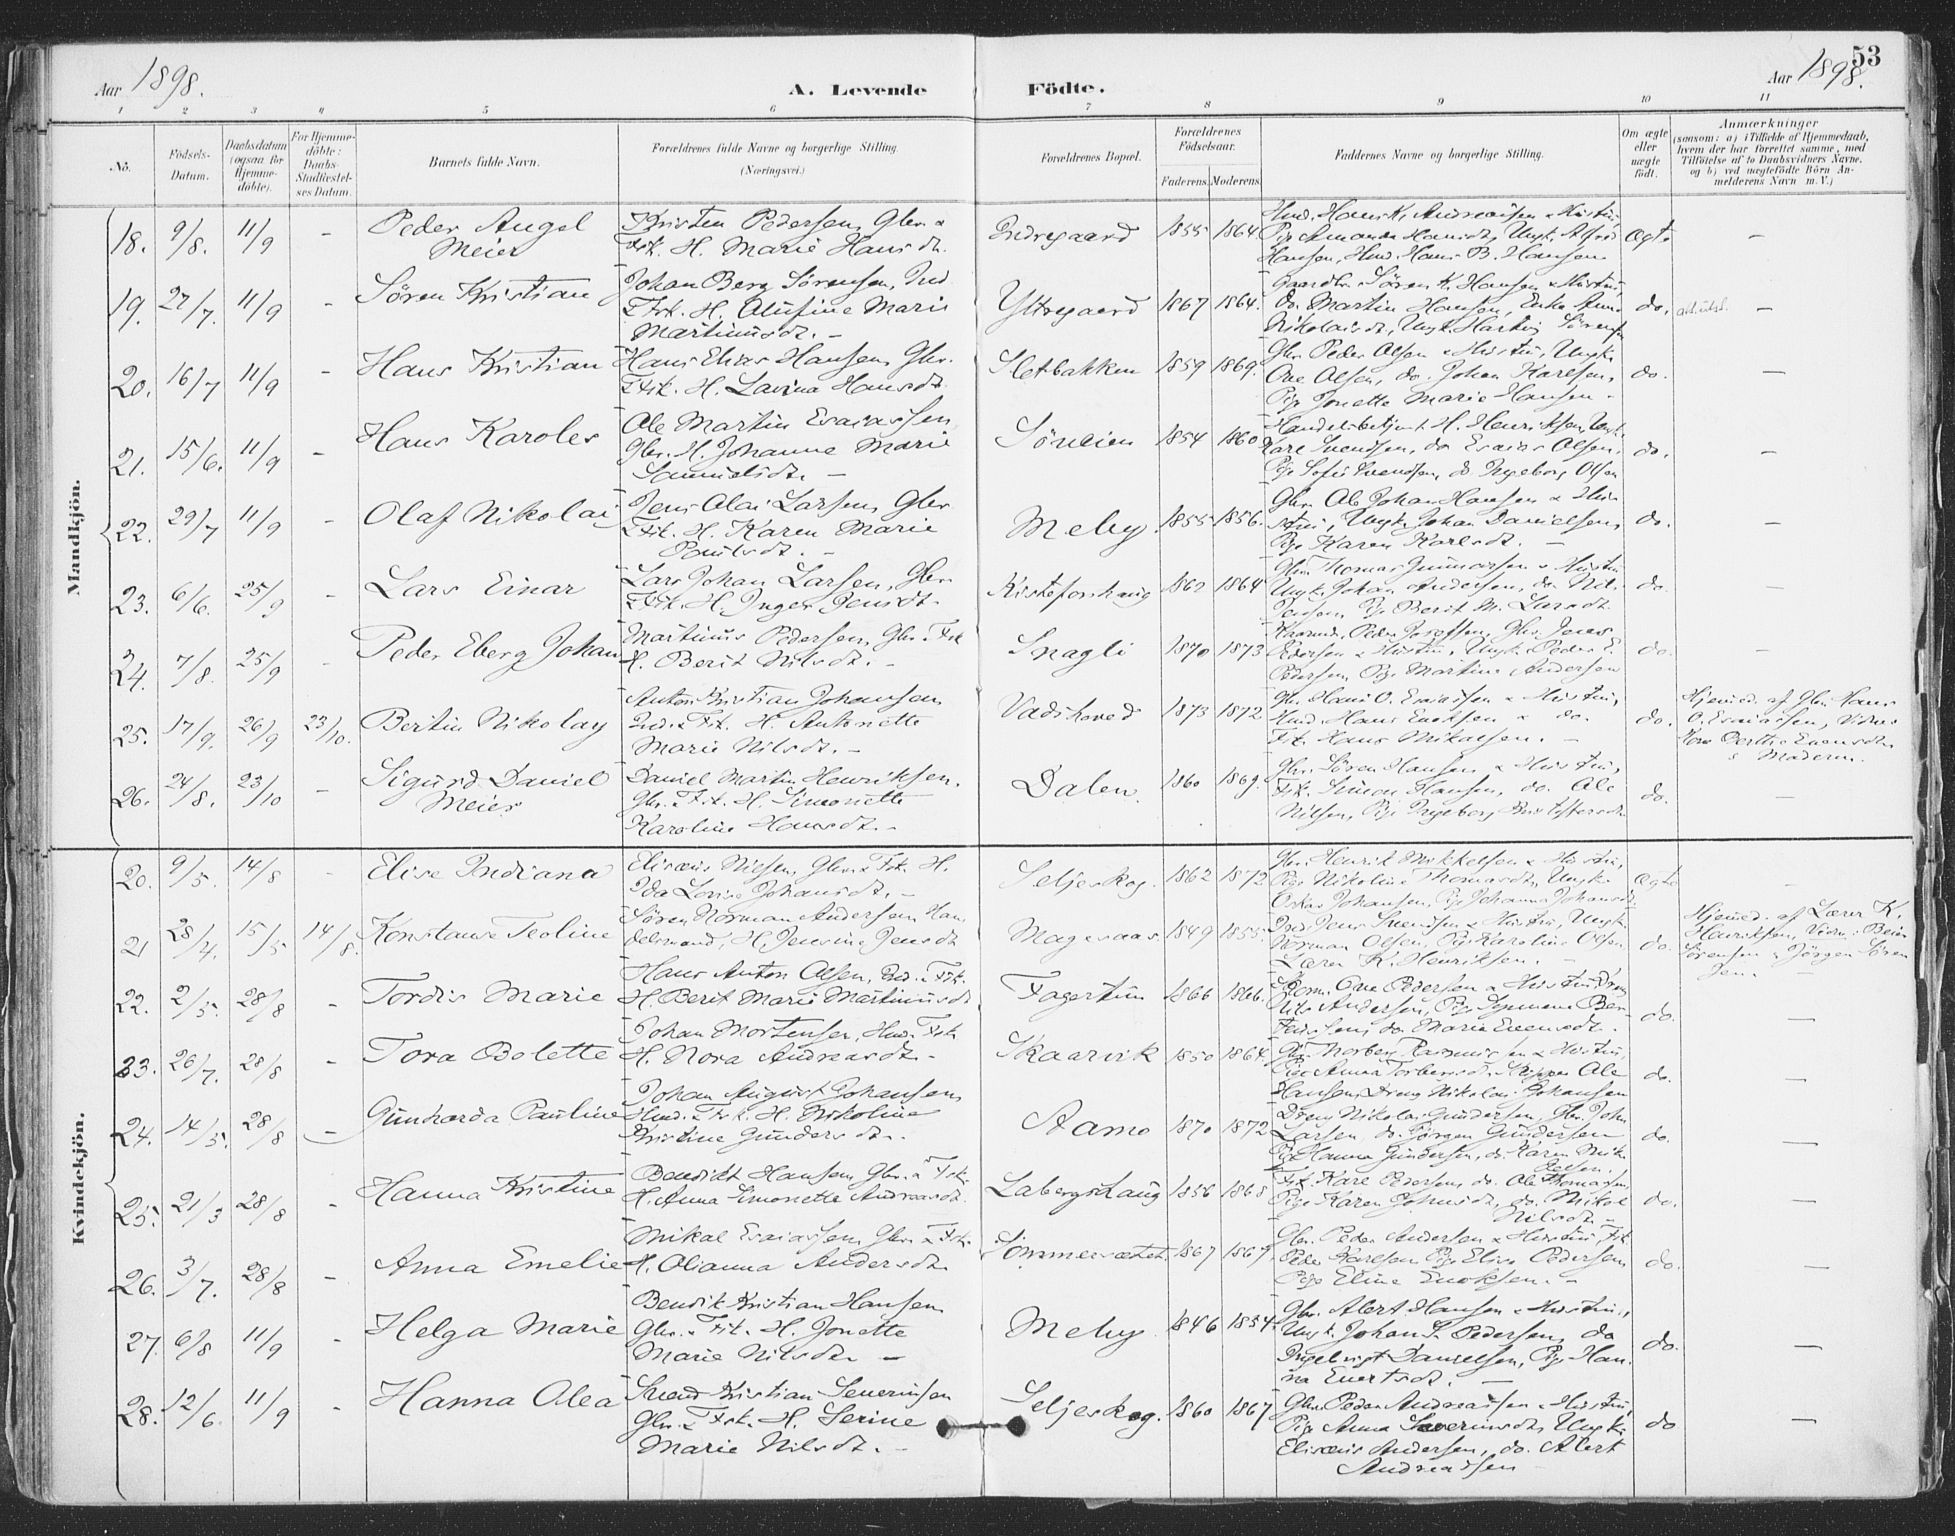 53
Aar 1898.
A. Levende Födte.
Aar 1898.
1 2 3 4 5 6 7 8 9 10 11
No.
Födsels-Datum.
Daabsdatum (ogsaa for Hjemme-döbte).
For Hjemme-döbte: Daabs-Stadfæstel-ses Datum.
Barnets fulde Navn.
Forældrenes fulde Navne og borgerlige Stilling.
(Næringsvei.)
Forældrenes Bopæl.
Forældrenes Födselsaar.
Faderens. Moderens.
Faddernes Navne og borgerlige Stilling.
Om ægte eller uægte födt.
Anmærkninger
(saasom: a) i Tilfælde af Hjemmedaab, hvem der har forrettet samme, med Tilföielse af to Daabsvidners Navne, og b) ved uægtefödte Börn An-melderens Navn m. V.)
Mandkjön.
18. 9/8. 11/9 - Peder Angel Meier
Kristen Pedersen, Gbr. &
Fsk. H. Marie Hansdt.
Indregaard 1855 1864.
Hansen, Hmd. Hans B. Hansen
Ægte -
19. 27/7. 11/9 - Sören Kristian
Johan Berg Sörensen, Ind.
& Fsk. H. Alufine Marie
Martinusdt. -
Yttregaard 1867 1864.
Gaardbr. Sören K. Hansen & Hustru,
do. Martin Hansen, Enke Anne
Nikolaisdt, Ungk. Hartvig Sörensen
do. -
20. 16/7 11/9 - Hans Kristian
Hans Elias Hansen, Gbr.
& Fsk. H. Lavina Hansdt.
Sletbakken 1859 1869.
Gbr. Peder Olsen & Hustru, Ungk.
Ove Olsen, do. Johan Karlsen,
Pige Jonette Marie Hansen -
do. -
21. 15/6. 11/9 - Hans Karoles
Ole Martin Esaiassen
Gbr. H. Johanne Marie
Samuelsdt. -
Sörveien 1854 1860
Handelsbetjent H. Henriksen, Ungk.
Karl Svendsen, do Esaias Olsen,
Pige Sofie Svendsen, do Ingeborg Olsen
do. -
22. 29/7 11/9 - Olaf Nikolai
Jens Olai Larsen, Gbr.
& Fsk. H. Karen Marie
Paulsdt. -
Meby. 1855 1856.
Gbr. Ole Johan Hansen & Hu-
stru, Ungk. Johan Danielsen,
Pige Karen Karlsdt. -
do. -
23. 6/6. 25/9 - Lars Einar
Lars Johan Larsen, Gbr.
& Fsk. H. Inger Jensdt.
1862 1864
Gbr. Thomas Gunnarsen & Hustru
Ungk. Johan Andersen, do Nil.
Jensen, Pige Berit M. Larsdt.
do. -
24. 7/8. 25/9 - Peder Eberg Johan
Martinus Pedersen, Gbr. & Fsk
H. Berit Nilsdt. -
Snagli 1870 1873
Kaarmd. Peder Josefsen, Gbr. Jens
Pedersen & Hustru, Ungk. Peder E.
Pedersen, Pige Martine Andersen
do. -
25. 17/9. 26/9 23/10. Bertin Nikolay
Anton Kristian Johansen
Ind. & Fsk. H. Antonette
Marie Nilsdt. -
Vadshoved 1873 1872
Gbr. Hans O. Esaiassen & Hustru,
Hmd. Hans Enoksen & do.
Fsk. Hans Mikalsen. -
do.
Hjemmed. af Gbr. Hans
O. Esaiassen, Vidner
& Moderen.
26. 24/8. 23/10 - Sigurd Daniel Meier
Daniel Martin Henriksen.
Gbr. & Fsk. H. Simonette
Karoline Hansdt. -
Dalen. 1860 1869.
Gbr. Sören Hansen & Hustru,
Fsk. Simon Hansen, do. Ole
Nilsen, Pige Ingeborg Kristoffersdt.
do. -
Kvindekjön.
20. 9/5. 14/8 - Elise Indiana
Elisæus Nilsen, Gbr. & Fsk. H.
Ida Lovise Johansdt. -
Seljeskog. 1862 1872
Gbr. Henrik Mikkelsen & Hustru,
Pige Nikoline Thomasdt, Ungk.
Oskar Johansen, Pige Johanna Johansdt.
Ægte -
21 28/4. 15/5 14/8. Konstanse Teoline
Sören Norman Andersen Han-
delsmand, H. Jensine Jensdt
Magesaas. 1849 1855.
Ind. Jens Svendsen & Hustru, Ungk.
Norman Olsen, Pige Karoline Olsen
Lærer K. Henriksen. -
do.
Hjemmed. af Lærer K.
Henriksen, Vidn.:
Sörensen & Jörgen Sören
sen. -
22. 2/5. 28/8 - Tordis Marie
Hans Anton Olsen, Ind. & Fsk.
H. Berit Marie Martinusdt
Fagertun 1866 1866.
Ove Pedersen & Hustru
Nils Andersen, Pige
do. Marie Evensdt.
do. -
23. 26/7. 28/8 - Tora Bolette
Johan Mortensen, Hmd. & Fsk
H. Nora Andreasdt. -
Skaarvik 1850 1864.
Gbr. Torberg Rasmussen & Hustru,
Pige Anna Torbersdt. Skipper Ole
Hansen, Dreng Nikolai Johansen
do. -
24. 14/5. 28/8 - Gunharda Pauline
Johan August Johansen
Hmd. & Fsk. H. Nikoline
Kristine Gundersdt.
Aamo 1870 1872
Dreng Nikolai Gundersen, Gbr. John
Larsen, do. Jörgen Gundersen
Pige Hanna Gundersen, do. Karen Mik-
kelsen.
do. -
25. 21/3 28/8 - Hanna Kristine
Benedikt Hansen, Gbr. & Fsk.
H. Anna Simonette Andreasdt.
Labergshaug 1856 1868
Fsk. Karl Pedersen, do. Ole Thomassen,
Pige Karen Johnsdt, do. Nikol.
Nilsdt. -
do. -
26. 3/7. 28/8 - Anna Emelie
Mikal Esaiassen, Gbr. & Fsk.
H. Olianna Andersdt.
Sommersætet 1867 1867
Gbr. Peder Andersen & Hustru, Fsk
Peder Karlsen, Pige Elise Pedersen
Pige Eline Enoksen. -
do. -
27. 6/8 11/9 - Helga Marie
Bendik Kristian Hansen
Gbr. & Fsk. H. Jonette
Marie Nilsdt. -
Meby. 1846 1854.
Gbr. Alert Hansen & Hustru,
Ungk. Johan S. Pedersen, do
Ingebrigt Danielsen, Pige Han-
na Evertsdt. -
do. -
28. 12/6. 11/9 - Hanna Olea
Svend Kristian Severinsen
Gbr. & Fsk. H. Serine
Marie Nilsdt. -
Seljeskog. 1860 1867
Gbr. Peder Andreassen & Hustru,
Pige Anna Severinsdt, Ungk.
Elisæus Andersen, do. Alert
Andreassen -
do -